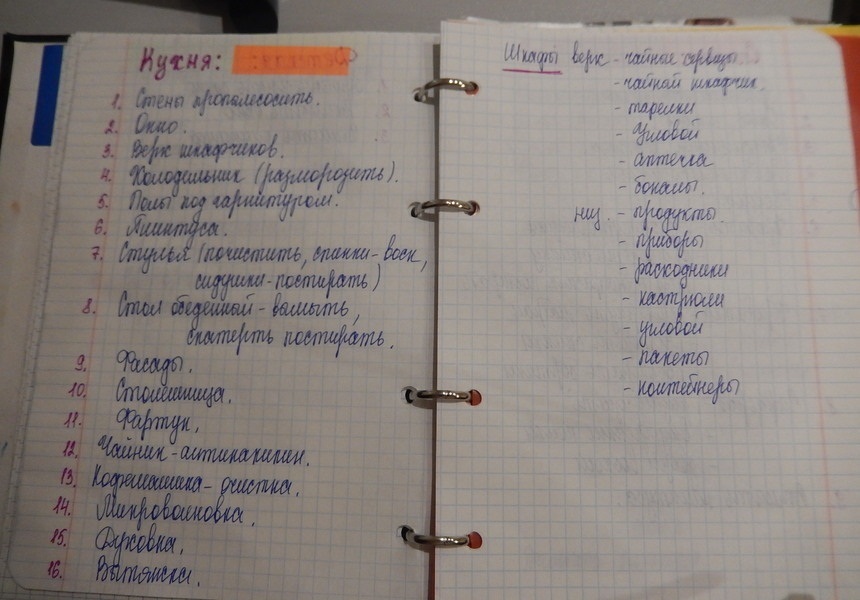 Кухня:
1. Стены пропылесосить.
2. Окно.
3. Верх шкафчиков.
4. Холодильник (разморозить).
5. Полы под гарнитуром.
6. Плинтуса.
7. Стулья (почистить, спинки-воск,
сидушки-постирать)
8. Стол обеденный - вымыть,
скатерть постирать.
9. Фасады.
10. Столешница.
11. Фартук.
12. Чайник - антинакипин.
13. Кофемашина - очистка.
14. Микроволновка.
15. Духовка.
16. Вытяжка.
Шкафы верх - чайные сервизы.
- чайный шкафчик.
- тарелки
- угловой
- аптечка
- бокалы.
низ. - продукты.
- приборы
- расходники
- кастрюли
- угловой
- пакеты
- контейнеры